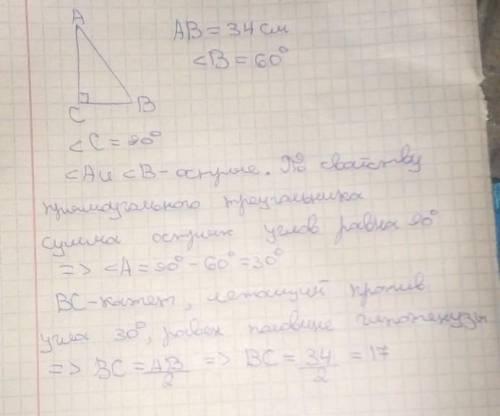 A
AB = 34 см
<B = 60°
C
B
<C = 90°
<A и <B - острые. По свойству
прямоугольного треугольника
сумма острых углов равна 90°
=> <A = 90° - 60° = 30°
BC - катет, лежащий против
угла 30°, равен половине гипотенузы
=> BC = AB/2 => BC = 34/2 = 17